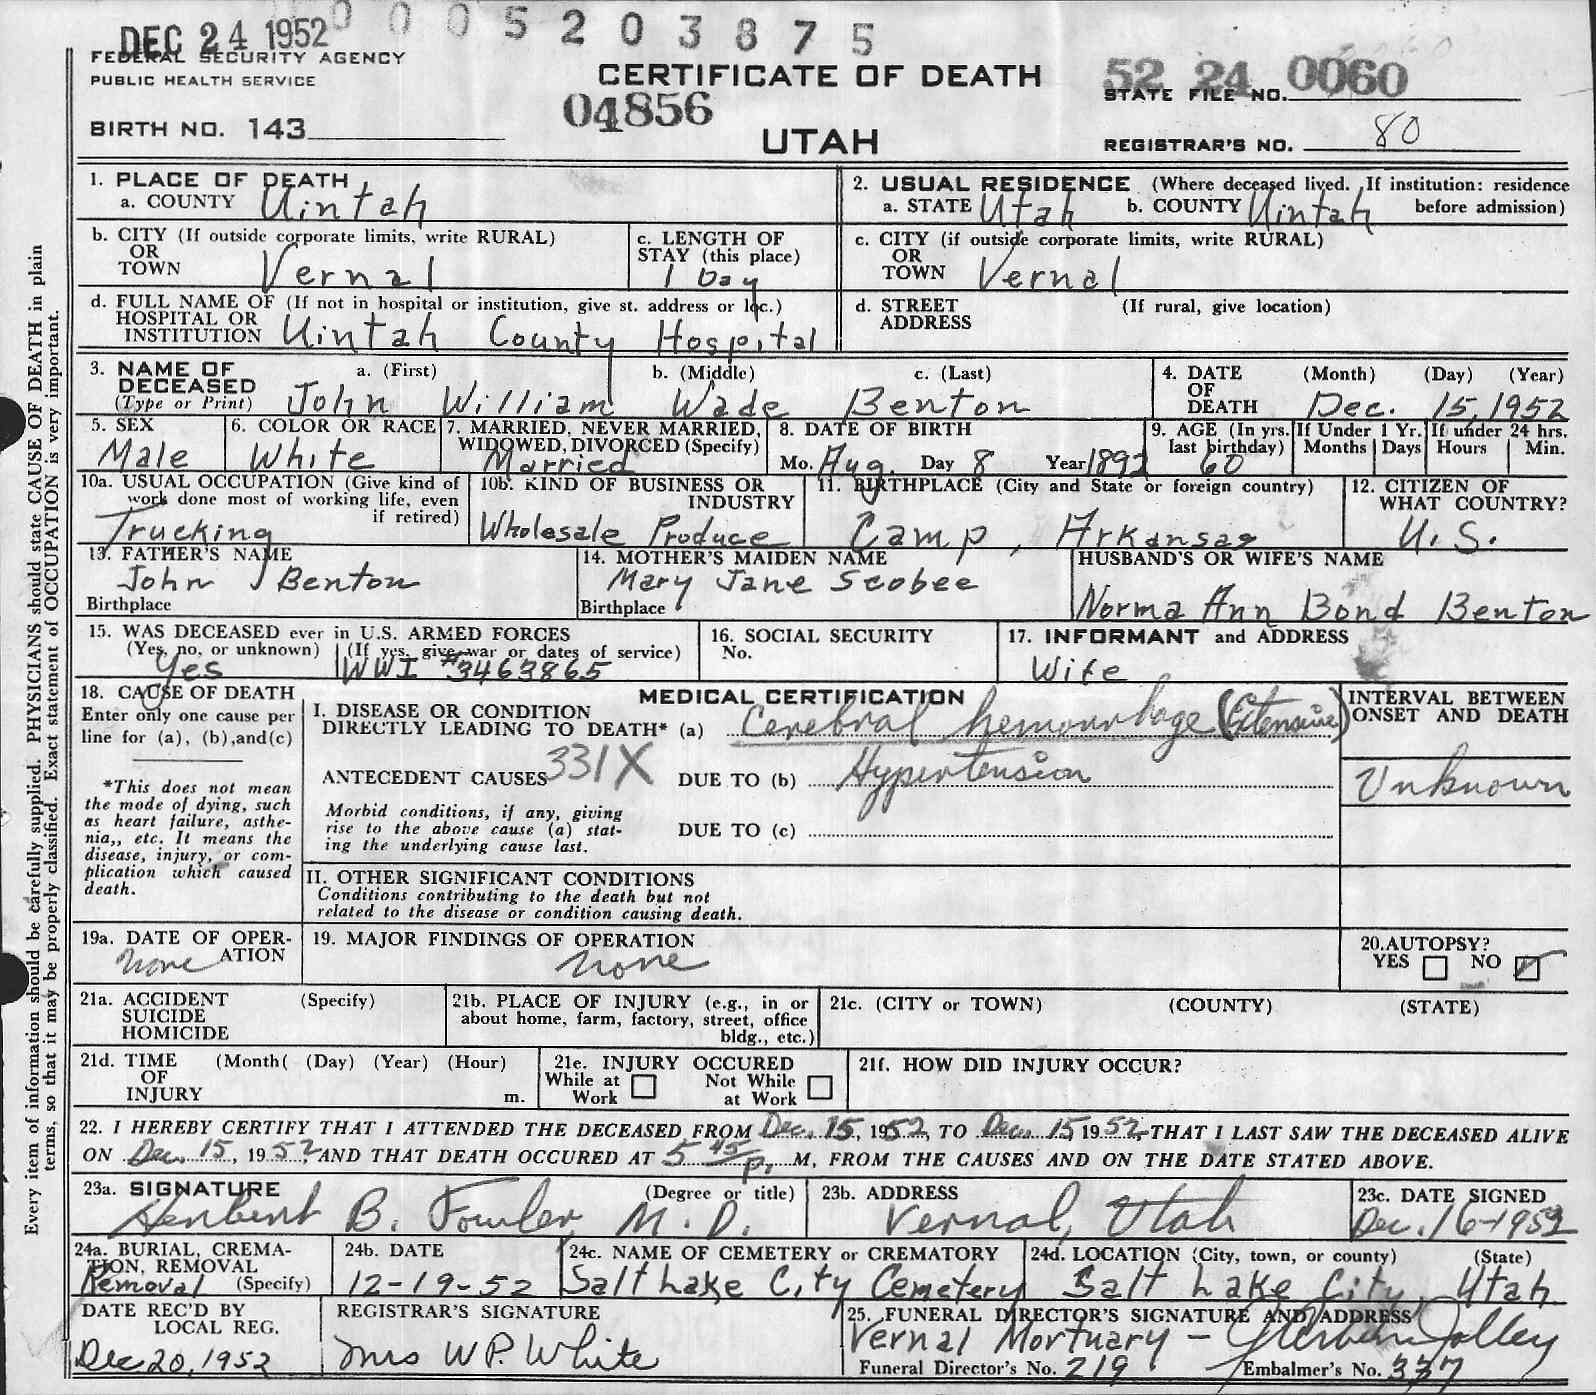 DEC 24 1952
0005203875
FEDERAL SECURITY AGENCY
PUBLIC HEALTH SERVICE
CERTIFICATE OF DEATH
52 24 0060
STATE FILE NO.
04856
BIRTH NO. 143
UTAH
REGISTRAR'S NO. 80
Every item of information should be carefully supplied. PHYSICIANS should state CAUSE OF DEATH in plain
terms, so that it may be properly classified. Exact statement of OCCUPATION is very important.
1. PLACE OF DEATH
a. COUNTY Uintah
2. USUAL RESIDENCE (Where deceased lived. If institution: residence
a. STATE Utah b. COUNTY Uintah before admission)
b. CITY (If outside corporate limits, write RURAL)
OR
TOWN Vernal
c. LENGTH OF
STAY (this place)
1 Day
c. CITY (if outside corporate limits, write RURAL)
OR
TOWN Vernal
d. FULL NAME OF (If not in hospital or institution, give st. address or loc.)
HOSPITAL OR
INSTITUTION Uintah County Hospital
d. STREET (If rural, give location)
ADDRESS
3. NAME OF a. (First) b. (Middle) c. (Last)
DECEASED
(Type or Print) John William Wade Benton
4. DATE (Month) (Day) (Year)
OF
DEATH Dec. 15, 1952
5. SEX
Male
6. COLOR OR RACE
White
7. MARRIED, NEVER MARRIED,
WIDOWED, DIVORCED (Specify)
Married
8. DATE OF BIRTH
Mo. Aug. Day 8 Year 1892
9. AGE (In yrs.
last birthday)
60
If Under 1 Yr.
Months Days
If under 24 hrs.
Hours Min.
10a. USUAL OCCUPATION (Give kind of
work done most of working life, even
if retired)
Trucking
10b. KIND OF BUSINESS OR
INDUSTRY
Wholesale Produce
11. BIRTHPLACE (City and State or foreign country)
Camp, Arkansas
12. CITIZEN OF
WHAT COUNTRY?
U. S.
13. FATHER'S NAME
John J Benton
Birthplace
14. MOTHER'S MAIDEN NAME
Mary Jane Scobee
Birthplace
HUSBAND'S OR WIFE'S NAME
Norma Ann Bond Benton
15. WAS DECEASED ever in U.S. ARMED FORCES
(Yes, no, or unknown) (If yes, give war or dates of service)
Yes WWI #3463865
16. SOCIAL SECURITY
No.
17. INFORMANT and ADDRESS
Wife
18. CAUSE OF DEATH
Enter only one cause per
line for (a), (b),and(c)
*This does not mean
the mode of dying, such
as heart failure, asthe-
nia,, etc. It means the
disease, injury, or com-
plication which caused
death.
MEDICAL CERTIFICATION
I. DISEASE OR CONDITION
DIRECTLY LEADING TO DEATH* (a) Cerebral hemorrhage (Extensive)
ANTECEDENT CAUSES 331X DUE TO (b) Hypertension
Morbid conditions, if any, giving
rise to the above cause (a) stat-
ing the underlying cause last.
DUE TO (c)
INTERVAL BETWEEN
ONSET AND DEATH
Unknown
II. OTHER SIGNIFICANT CONDITIONS
Conditions contributing to the death but not
related to the disease or condition causing death.
19a. DATE OF OPER-
ATION
none
19. MAJOR FINDINGS OF OPERATION
none
20. AUTOPSY?
YES NO
21a. ACCIDENT (Specify)
SUICIDE
HOMICIDE
21b. PLACE OF INJURY (e.g., in or
about home, farm, factory, street, office
bldg., etc.)
21c. (CITY or TOWN) (COUNTY) (STATE)
21d. TIME (Month( (Day) (Year) (Hour)
OF
INJURY m.
21e. INJURY OCCURED
While at Work Not While at Work
21f. HOW DID INJURY OCCUR?
22. I HEREBY CERTIFY THAT I ATTENDED THE DECEASED FROM Dec. 15, 1952, TO Dec. 15 1952, THAT I LAST SAW THE DECEASED ALIVE
ON Dec. 15, 1952, AND THAT DEATH OCCURED AT 5 45 p. M, FROM THE CAUSES AND ON THE DATE STATED ABOVE.
23a. SIGNATURE (Degree or title)
Herbert B. Fowler, M. D.
23b. ADDRESS
Vernal, Utah
23c. DATE SIGNED
Dec. 16-1952
24a. BURIAL, CREMA-
TION, REMOVAL
Removal (Specify)
24b. DATE
12-19-52
24c. NAME OF CEMETERY or CREMATORY
Salt Lake City Cemetery
24d. LOCATION (City, town, or county) (State)
Salt Lake City, Utah
DATE REC'D BY
LOCAL REG.
Dec 20, 1952
REGISTRAR'S SIGNATURE
Mrs W P. White
25. FUNERAL DIRECTOR'S SIGNATURE AND ADDRESS
Vernal Mortuary - Jolley
Funeral Director's No. 219 Embalmer's No. 337